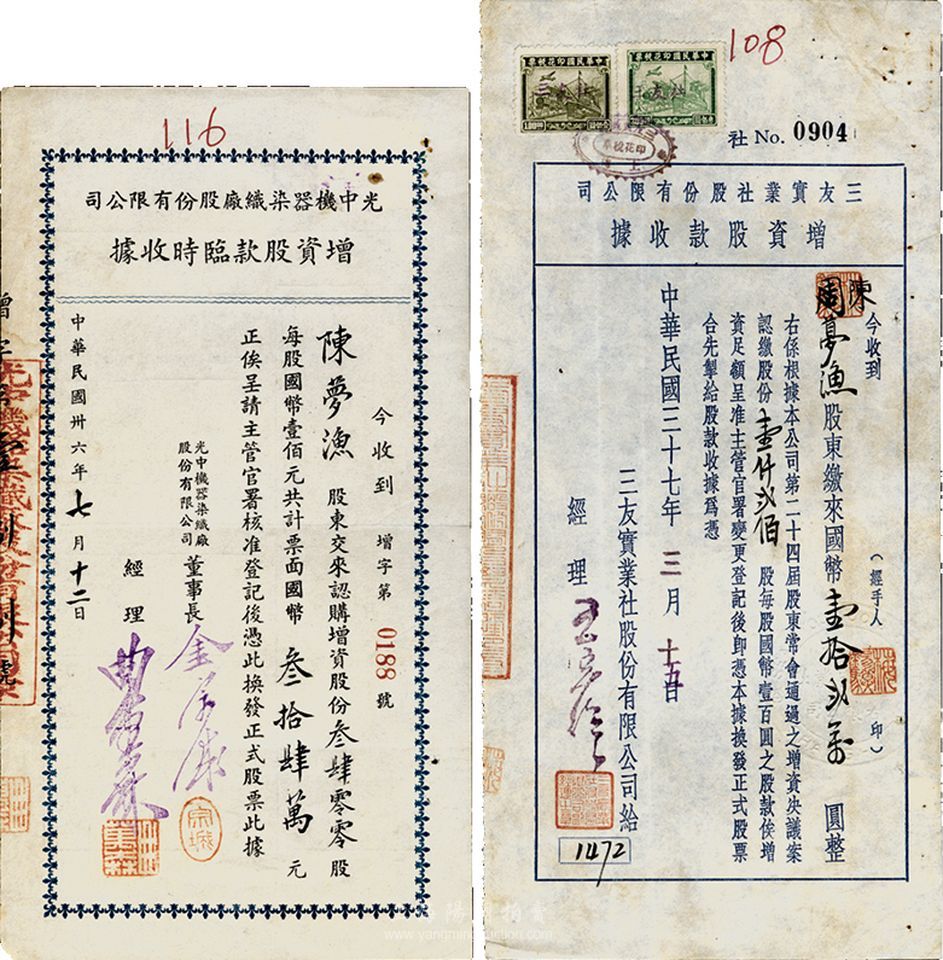 116
光中機器染織廠股份有限公司
增資股款臨時收據
今收到 增字第 0188 號
陳夢漁 股東交來認購增資股份叁肆零零股
每股國幣壹佰元共計票面國幣 叁拾肆萬 元
正俟呈請主管官署核准登記後憑此換發正式股票此據
光中機器染織廠
股份有限公司
董事長
經理
中華民國卅六年七月十二日
108
中華民國印花稅票
中華民國印花稅票
三友社
社 No. 0904
三友實業社股份有限公司
增資股款收據
今收到 (經手人 印)
陳周夢漁 股東繳來國幣 壹拾弍萬 圓整
右係根據本公司第二十四屆股東常會通過之增資決議案
認繳股份 壹仟弍佰 股每股國幣壹百圓之股款俟增
資足額呈准主管官署變更登記後即憑本據換發正式股票
合先掣給股款收據為憑
三友實業社股份有限公司給
經理
中華民國三十七年三月十五日
1472
www.yangmingauction.com